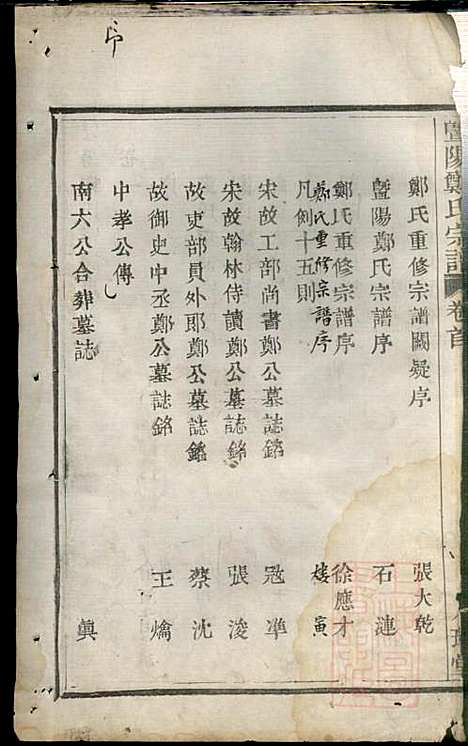 序
暨陽鄭氏宗譜 卷首
鄭氏重修宗譜闕疑序 張大乾
暨陽鄭氏宗譜序 石漣
鄭氏重修宗譜序 徐應才
鄭氏重修宗譜序 楼寅
凡例十五則
宋故工部尚書鄭公墓誌銘 寇凖
宋故翰林侍讀鄭公墓誌銘 張浚
故吏部員外郎鄭公墓誌銘 蔡沈
故御史中丞鄭公墓誌銘 王爚
中孝公傳
南六公合葬墓誌 眞